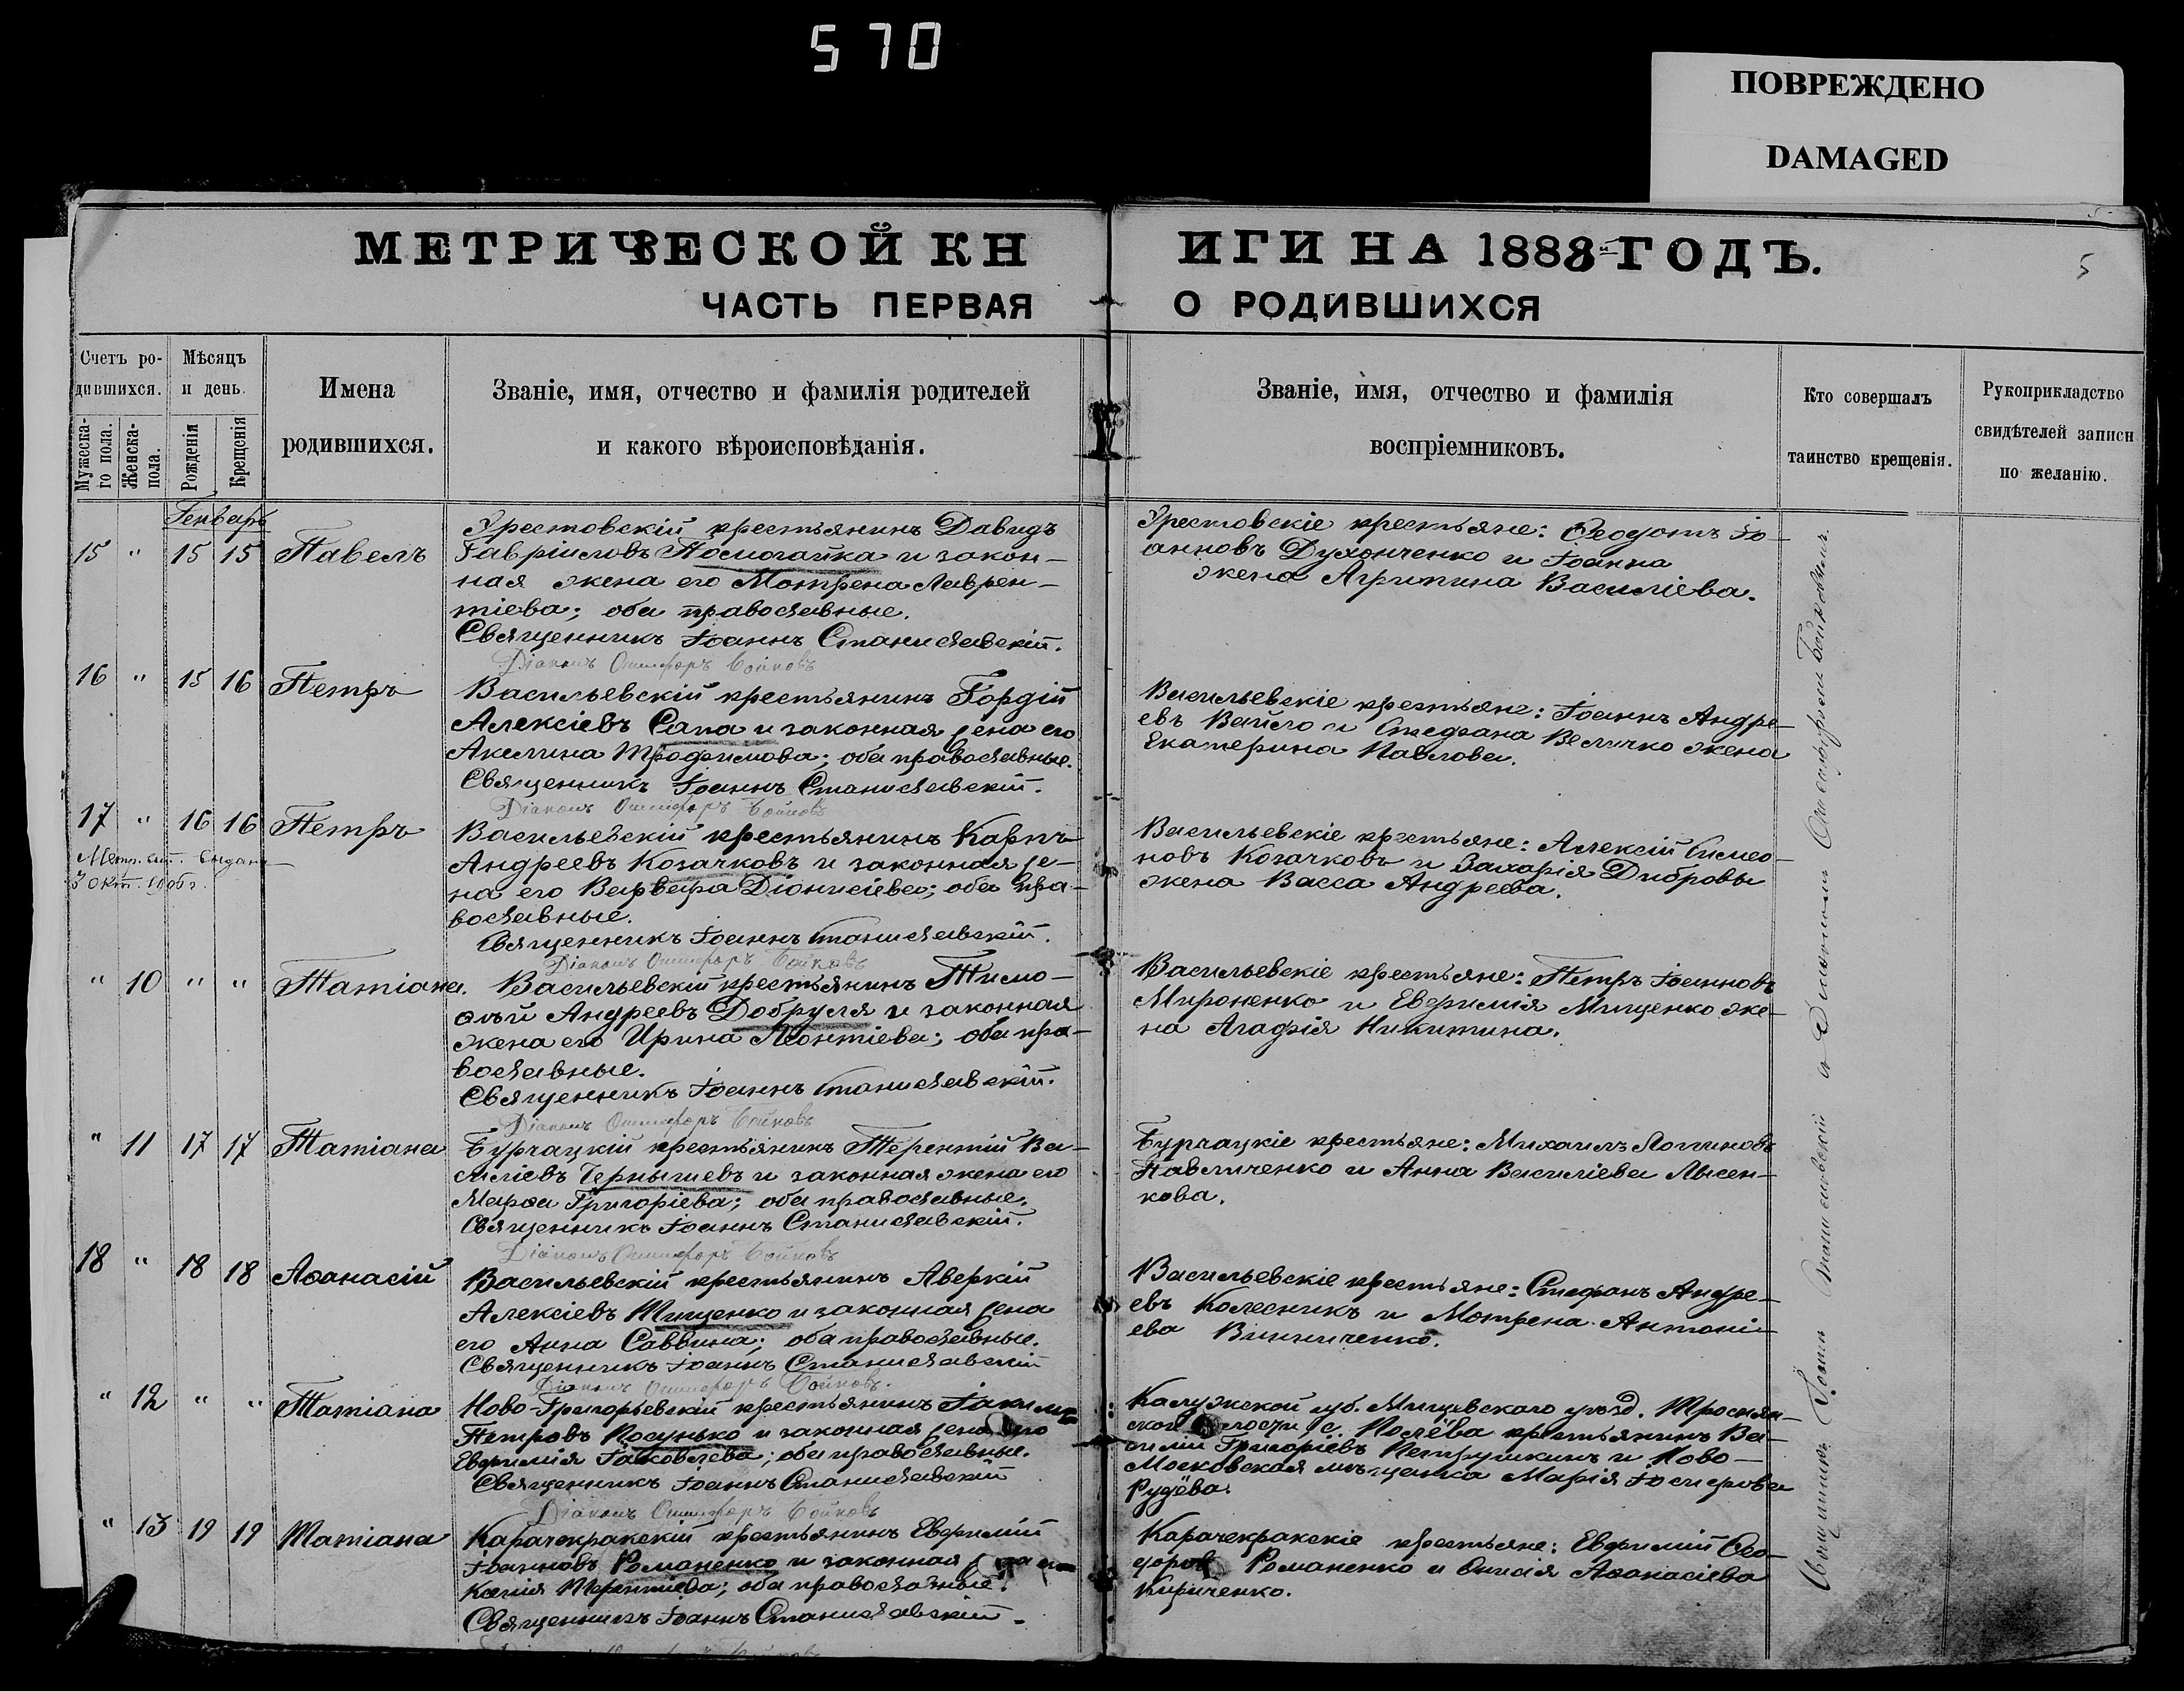 570
ПОВРЕЖДЕНО
DAMAGED
МЕТРИЧЕСКОЙ КН
ИГИ НА 1888 ГОДЪ.
5
ЧАСТЬ ПЕРВАЯ
О РОДИВШИХСЯ
Счетъ ро-
дившихся.
Мужеска-
го пола.
Женска-
пола.
Мѣсяцъ
и день.
Рожденія
Крещенія
Имена
родившихся.
Званіе, имя, отчество и фамилія родителей
и какого вѣроисповѣданія.
Званіе, имя, отчество и фамилія
воспріемниковъ.
Кто совершалъ
таинство крещенія.
Рукоприкладство
свидѣтелей записи
по желанію.
Генварь
15 " 15 15 Павелъ
крестьянинъ Давидъ
Гавріиловъ Помогайка и закон-
ная жена его Мотрена Лаврен-
тіева; оба православные.
Священникъ Іоаннъ Станиславскій.
Діаконъ Онисифоръ Бойковъ
крестьяне: Ѳеодотъ Іо-
анновъ Духонченко и Іоанна
жена Агрипина Василіева.
16 " 15 16 Петръ
Васильевскій крестьянинъ Гордій
Алексіевъ Сапа и законная жена его
Акилина Трофимова; оба православные.
Священникъ Іоаннъ Станиславскій.
Діаконъ Онисифоръ Бойковъ
Васильевскіе крестьяне: Іоаннъ Андре-
евъ Вайло и Стефана Величко жена
Екатерина Павлова.
17 " 16 16 Петръ
Метр. выдана
3 окт.
Васильевскій крестьянинъ Карпъ
Андреевъ Козачковъ и законная же-
на его Варвара Діонисіева; оба пра-
вославные.
Священникъ Іоаннъ Станиславскій.
Діаконъ Онисифоръ Бойковъ
Васильевскіе крестьяне: Алексій Симео-
новъ Козачковъ и Захарія Дибровы
жена Васса Андреева.
" 10 " " Татіана.
Васильевскій крестьянинъ Тимо-
ѳей Андреевъ Добруля и законная
жена его Ирина Леонтіева; оба пра-
вославные.
Священникъ Іоаннъ Станиславскій.
Діаконъ Онисифоръ Бойковъ
Васильевскіе крестьяне: Петръ Іоанновъ
Мироненко и Евфимія Мищенко же-
на Агафія Никитина.
" 11 17 17 Татіана
Бурчацкій крестьянинъ Терентій Ва-
силіевъ Чернышевъ и законная жена его
Марѳа Григоріева; оба православные.
Священникъ Іоаннъ Станиславскій.
Діаконъ Онисифоръ Бойковъ
Бурчацкіе крестьяне: Михаилъ Логгиновъ
Павличенко и Анна Василіева Лысен-
кова.
18 " 18 18 Аѳанасій
Васильевскій крестьянинъ Аверкій
Алексіевъ Тищенко и законная жена
его Анна Саввина; оба православные.
Священникъ Іоаннъ Станиславскій
Діаконъ Онисифоръ Бойковъ.
Васильевскіе крестьяне: Стефанъ Андре-
евъ Колесникъ и Мотрена Антоні-
ева Винниченко.
" 12 " " Татіана
Ново-Григорьевскій крестьянинъ Іакимъ
Петровъ Косунько и законная жена его
Евфимія Іаковлева; оба православные.
Священникъ Іоаннъ Станиславскій
Діаконъ Онисифоръ Бойковъ
Калужской губ. Мещевскаго уѣзд.
крестьянинъ Ва-
силій Григоріевъ Петрушкинъ и Ново-
Московская мѣщанка Марія Іосифова
Рудёва.
" 13 19 19 Татіана
Карачекракскій крестьянинъ Евфимій
Іоанновъ Романенко и законная жена его
Ксенія Терентіева; оба православные.
Священникъ Іоаннъ Станиславскій.
Карачекракскіе крестьяне: Евфимій Ѳео-
доровъ Романенко и Аѳанасіева
Кириченко.
Священникъ Іоаннъ Станиславскій и Діаконъ Онисифоръ Бойковъ